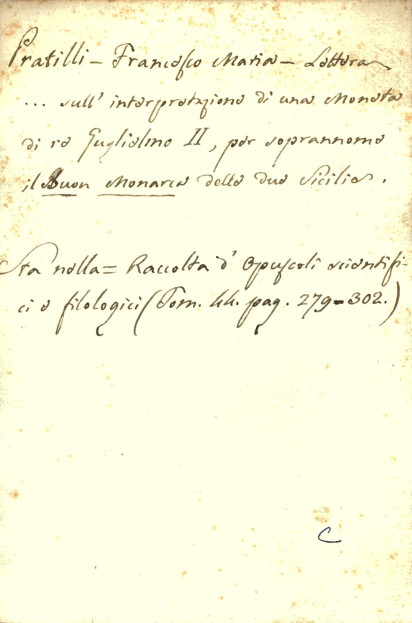 Pratilli - Francesco Maria - Lettera
... sull' interpretazione di una Moneta
di re Guglielmo II, per soprannome
il Buon Monarca delle due Sicilie.
Sta nella = Raccolta d' Opuscoli scientifi-
ci e filologici (Tom. 44. pag. 279-302.)
C